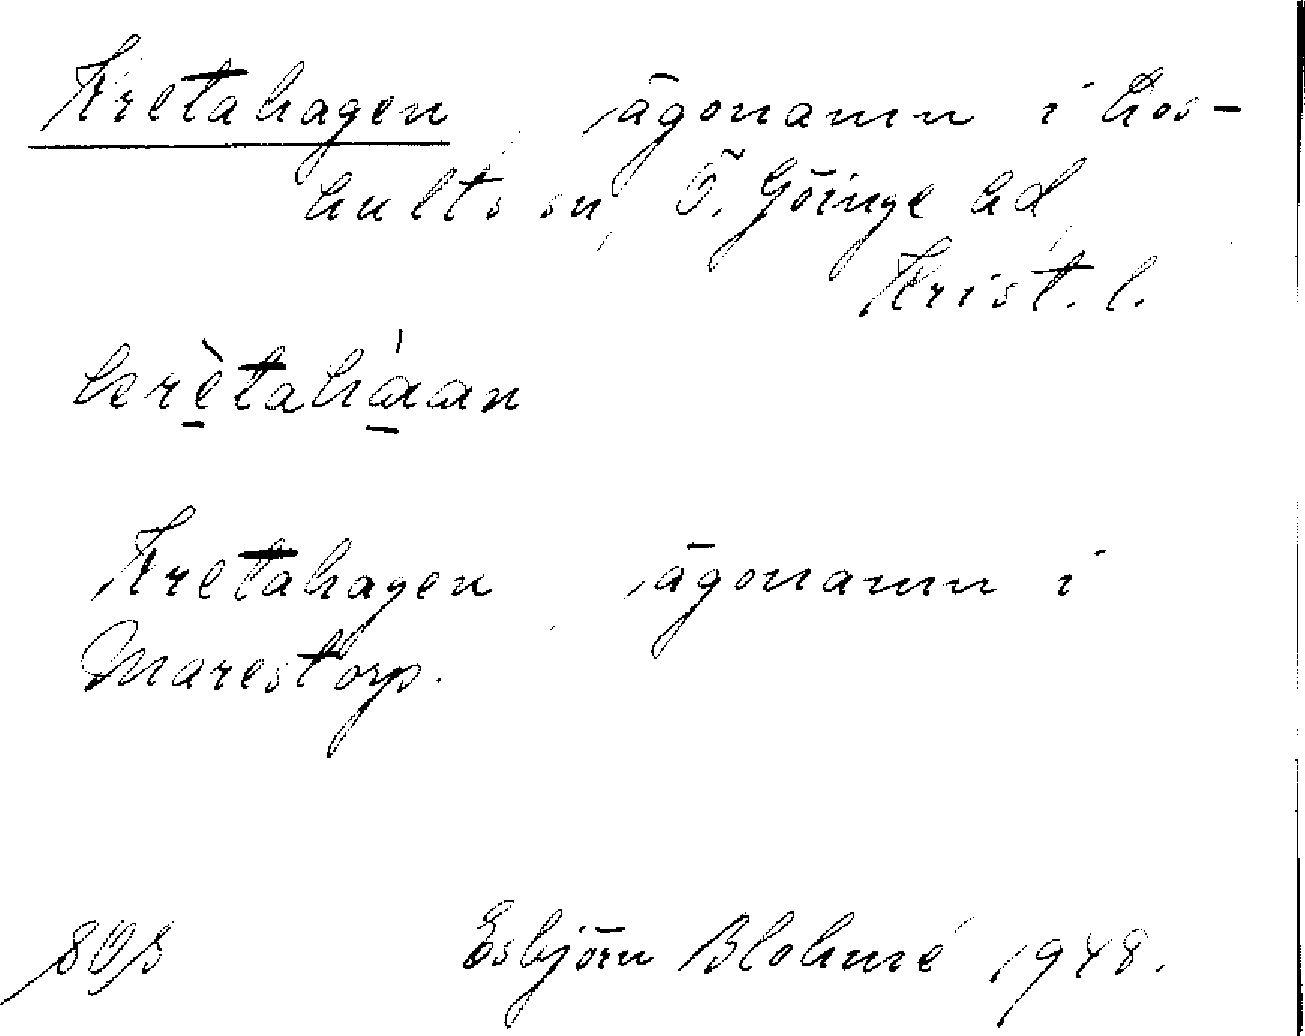 Kretahagen, ägonamn i Los-
hults sn, Ö. Göinge hd,
Krist. l.
krètaháan
Kretahagen ägonamn i
Marestorp.
Esbjörn Blohmé 1948.